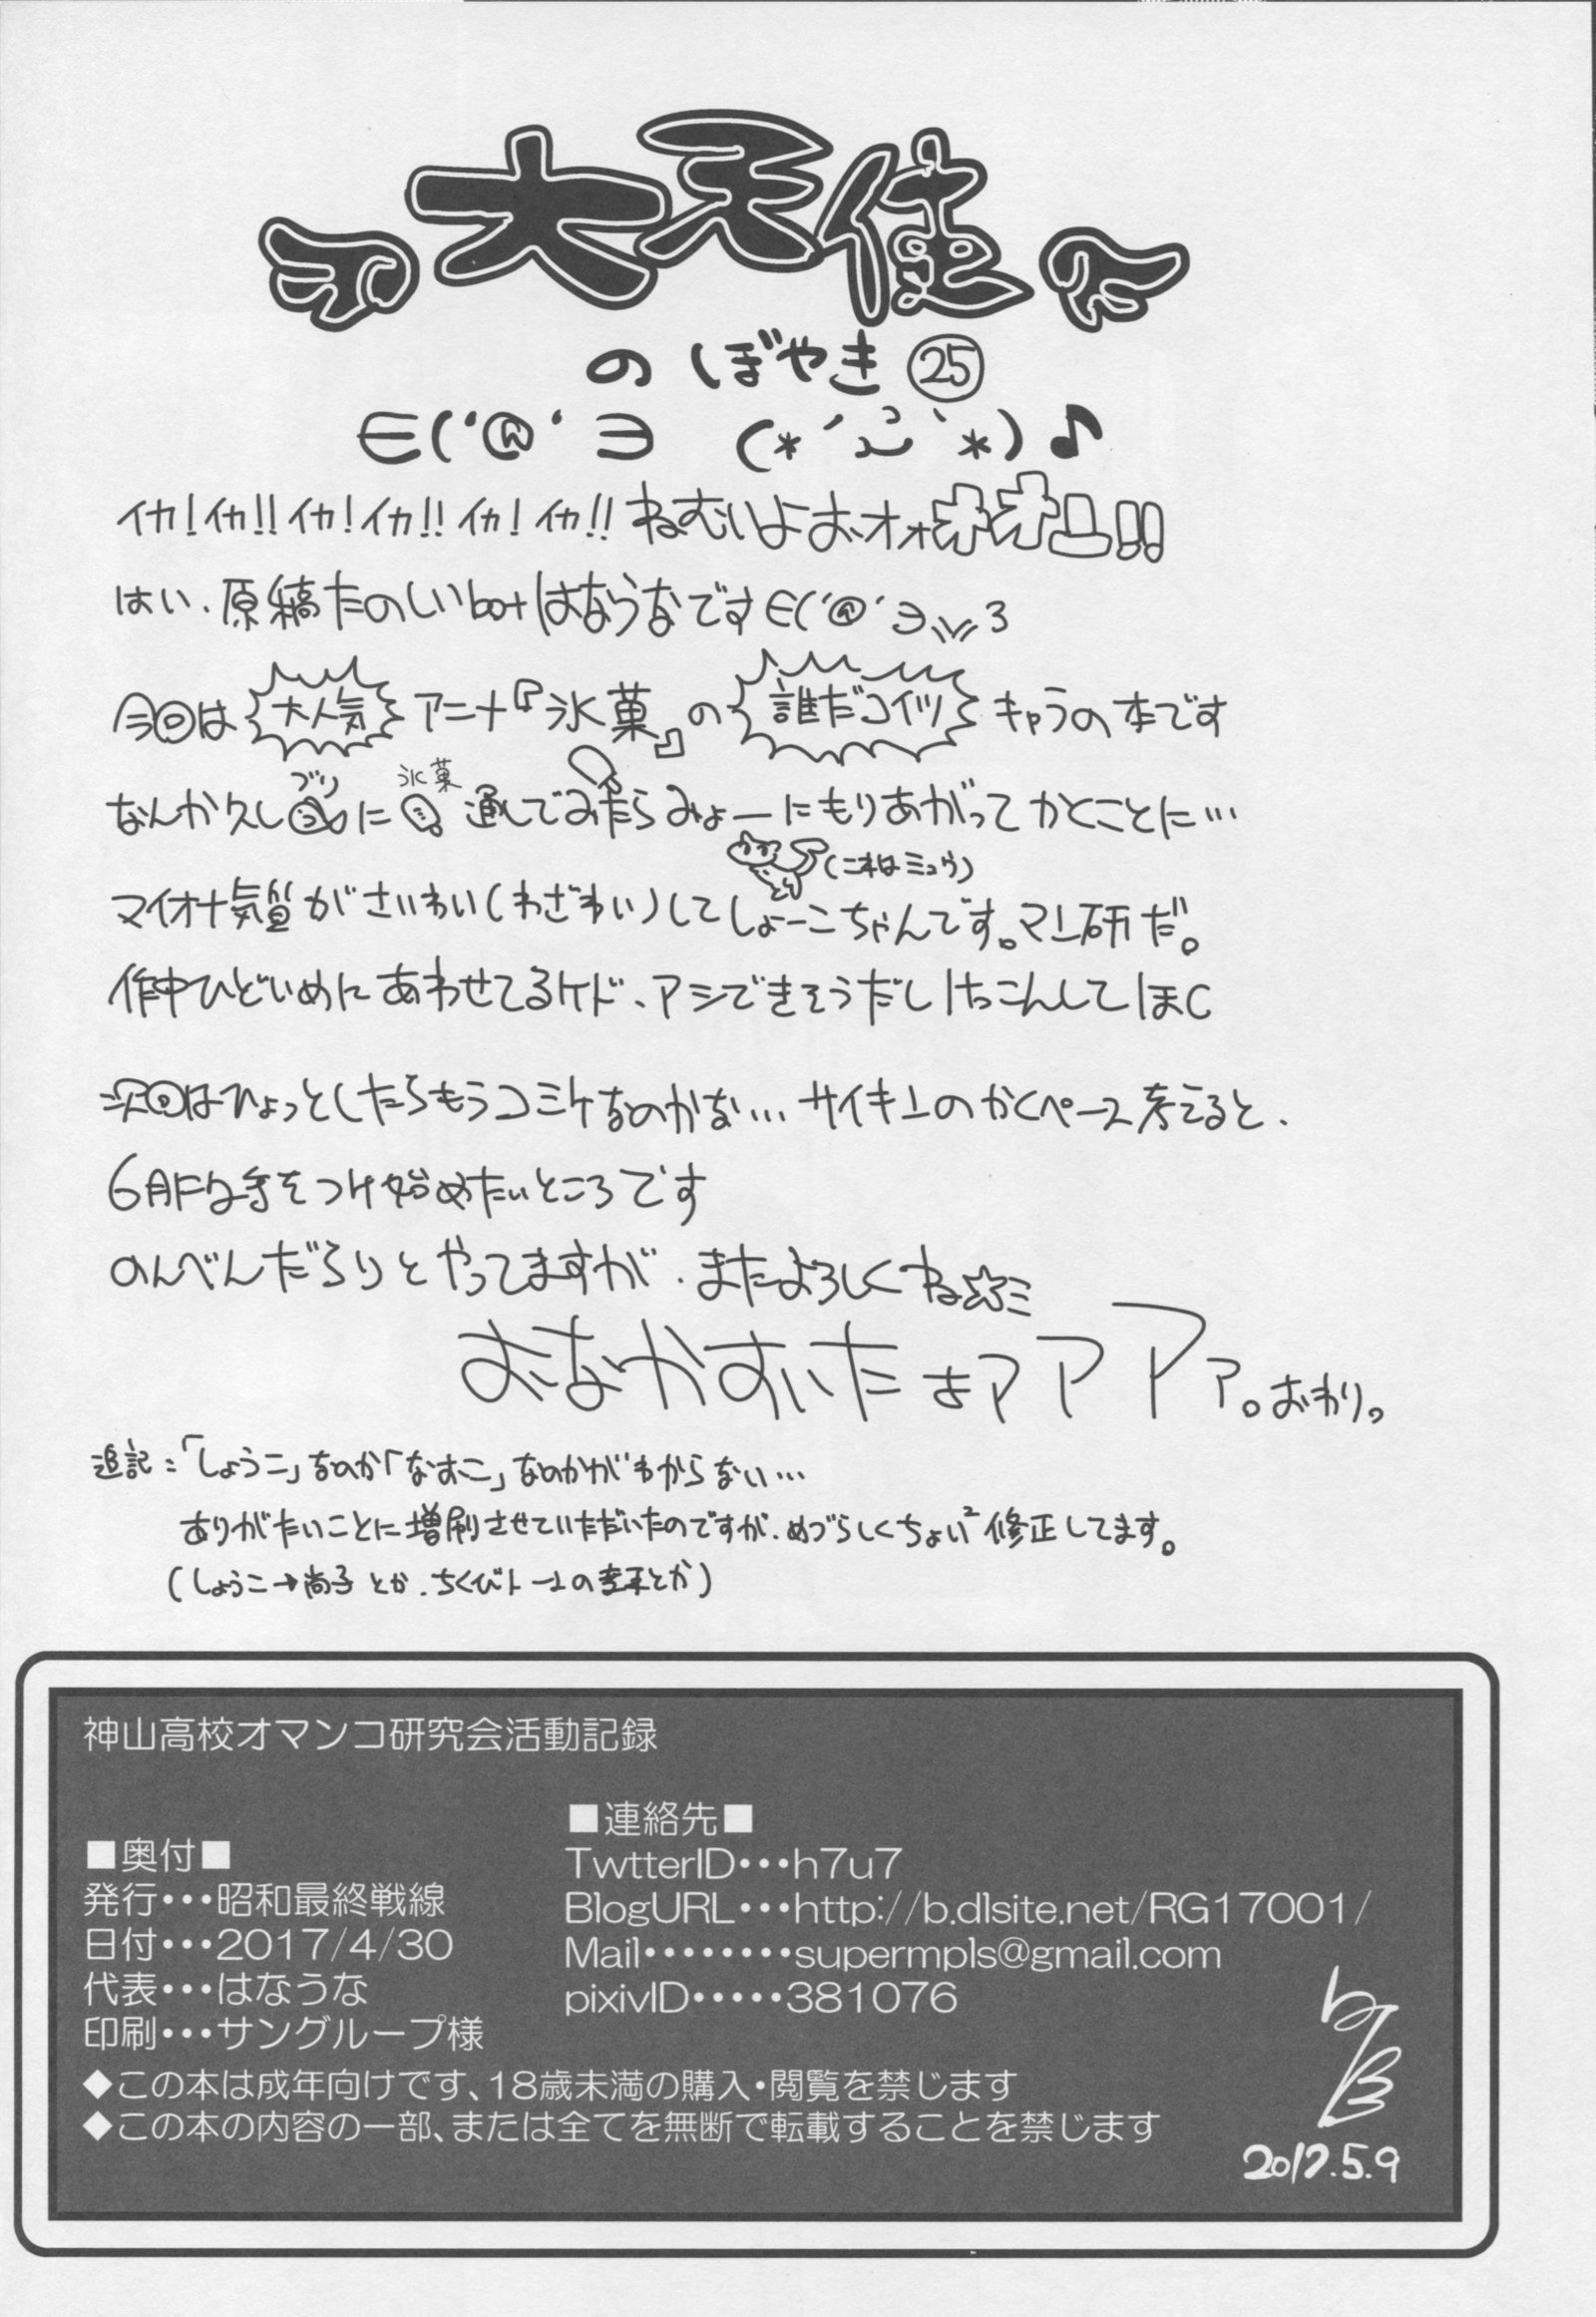 大天使
のぼやき㉕
∈('@'∋ (*´`*)♪
イカ!イカ!!イカ!イカ!!イカ!イカ!!ねむいよおオォオオ!!
はい、原稿たのしいbotはなうなです∈('@'∋
今回は大人気アニメ『氷菓』の誰だコイツキャラの本です
ブリ 氷菓
なんか久しに 通しでみたらみょーにもりあがってかくことに…
(これはミュウ)
マイナー気質がさいわい(わざわい)してしょーこちゃんです。マン研だ。
作中ひどいめにあわせてるケド、アシできそうだしけっこんしてほC
次回はひょっとしたらもうコミケなのかな…サイキンのかくペース考えると、
6月には手をつけ始めたいところです
のんべんだらりとやってますが、またよろしくね☆ミ
おなかすいたよアアアァ。おわり。
追記:「しょうこ」なのか「なおこ」なのかがわからない…
ありがたいことに増刷させていただいたのですが、めづらしくちょい²修正してます。
(しょうこ→尚子とか、ちくびトーンの とか)
神山高校オマンコ研究会活動記録
■奥付■
発行･･･昭和最終戦線
日付･･･2017/4/30
代表･･･はなうな
印刷･･･サングループ様
■連絡先■
TwtterID･･･h7u7
BlogURL･･･http://b.dlsite.net/RG17001/
Mail････････supermpls@gmail.com
pixivID･････381076
◆この本は成年向けです、18歳未満の購入・閲覧を禁じます
◆この本の内容の一部、または全てを無断で転載することを禁じます
2017.5.9